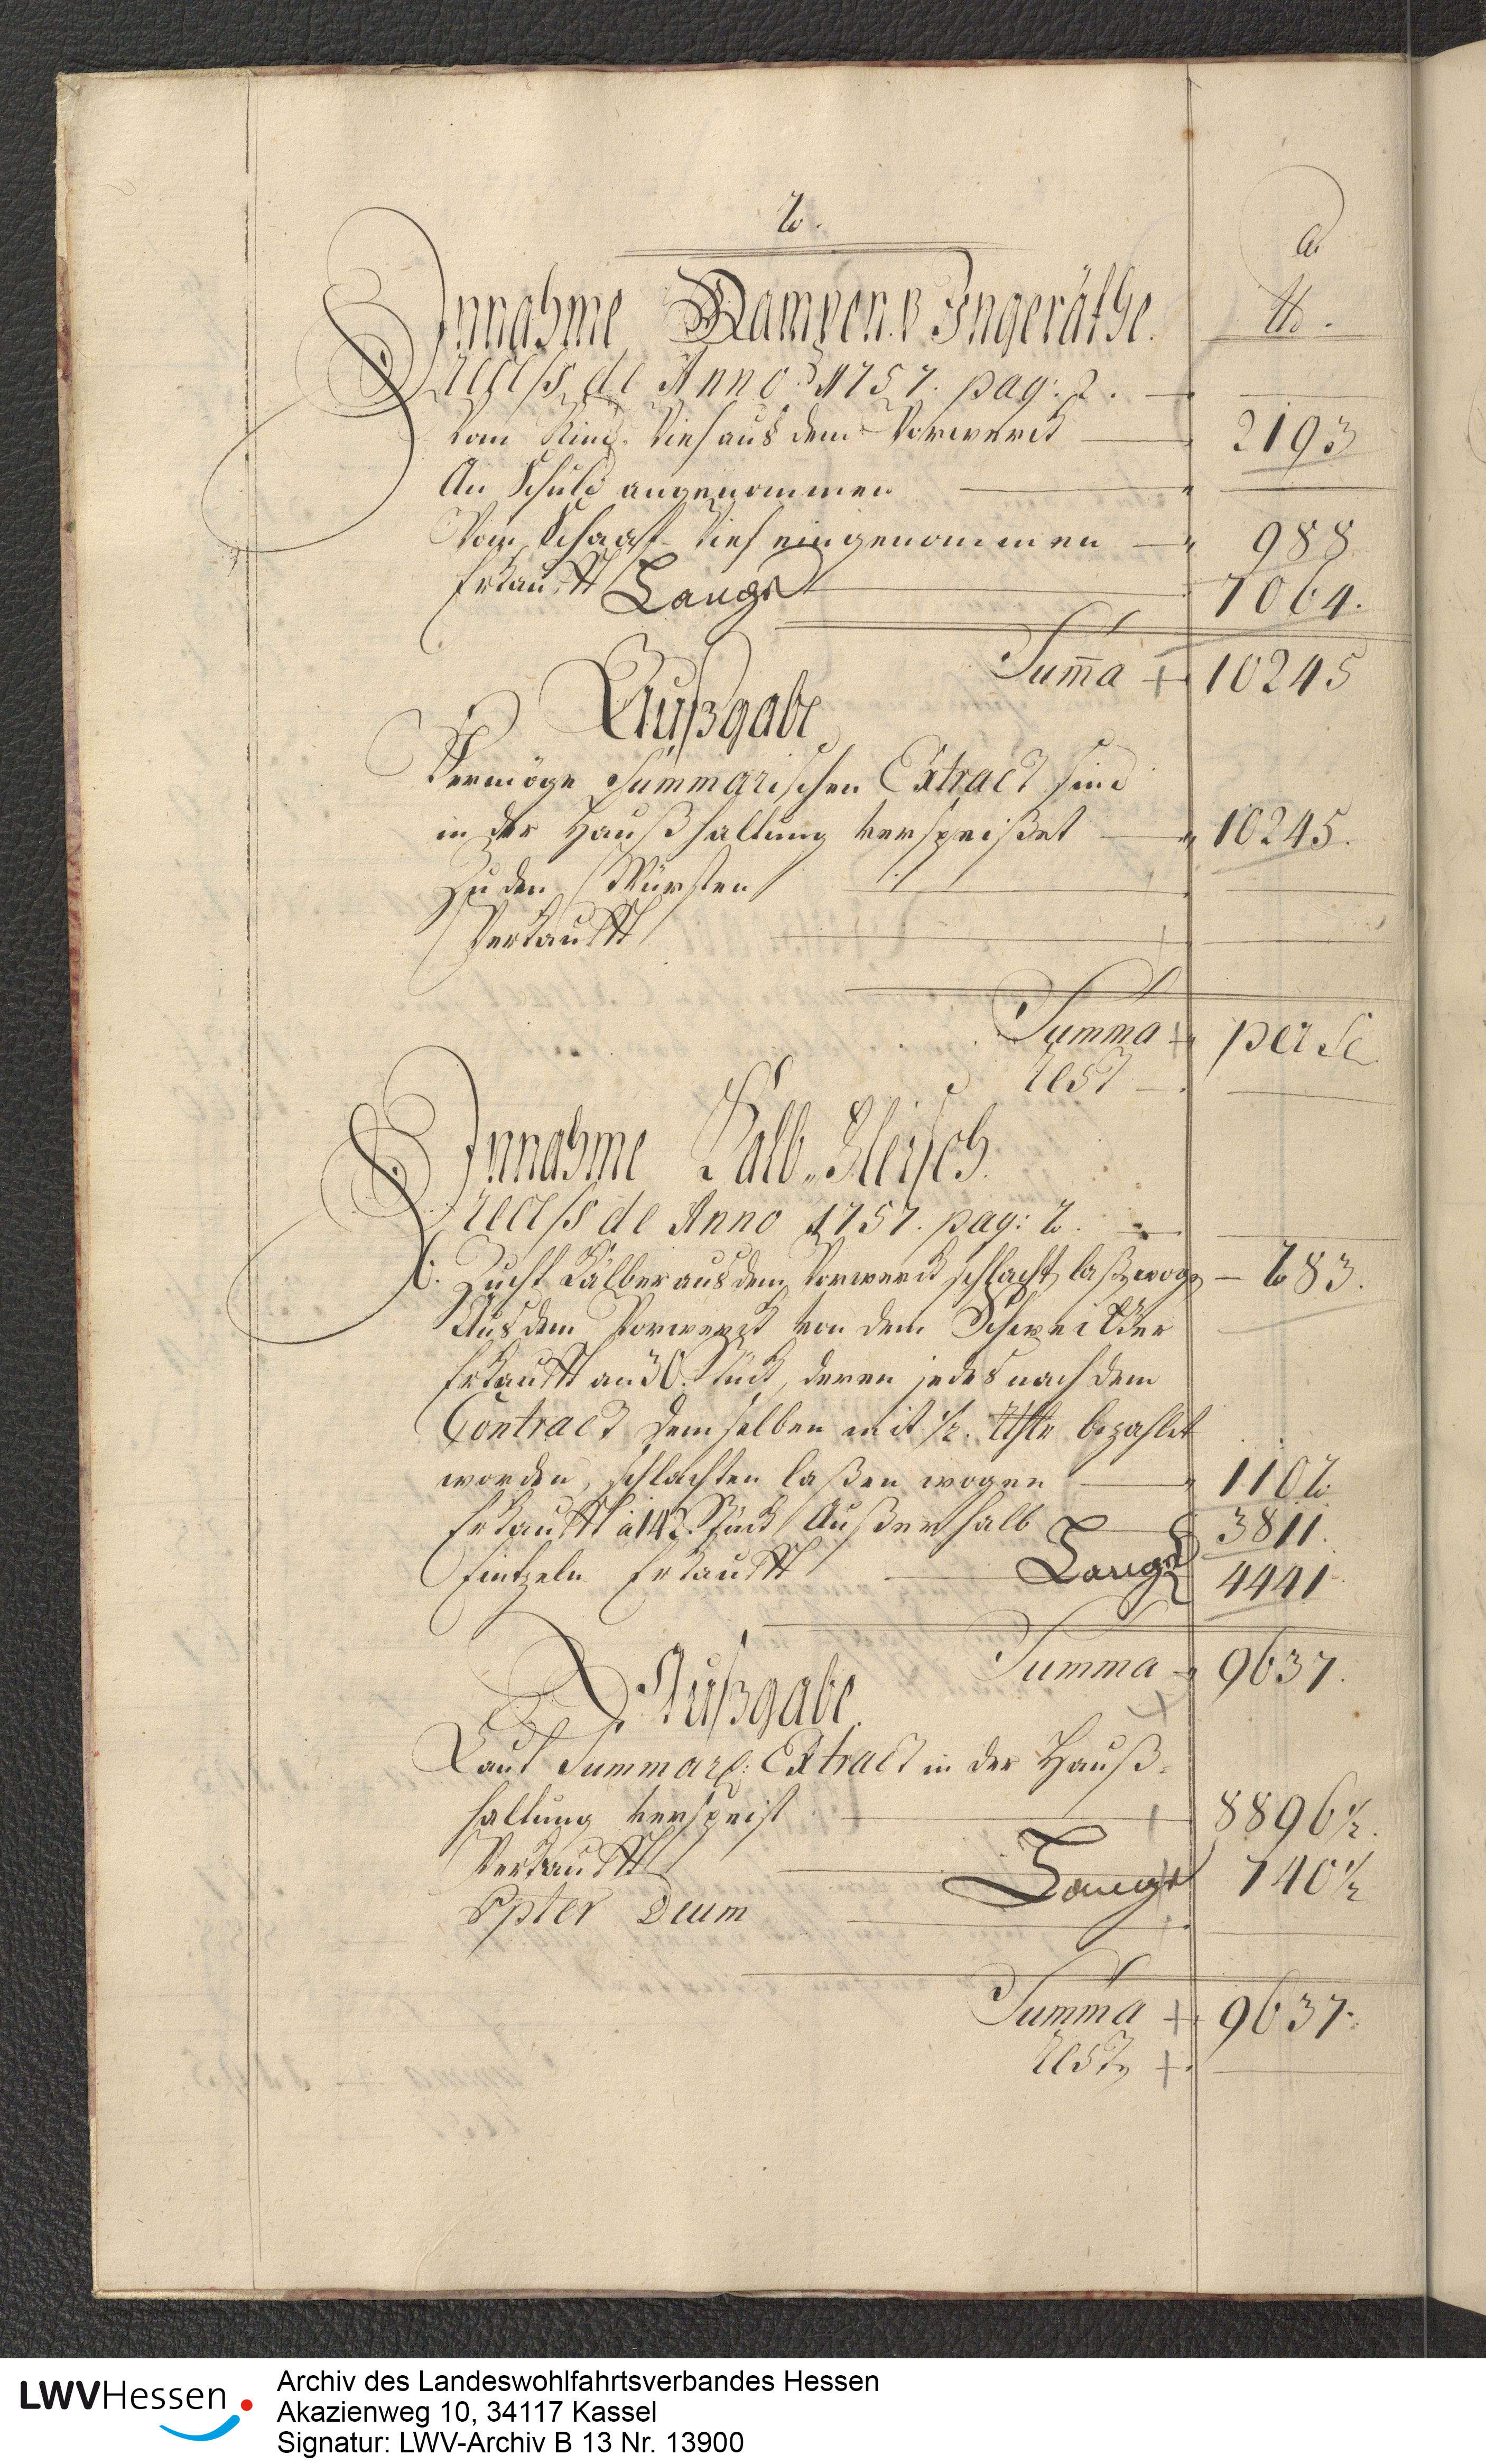 2.
Einnahme Wampen u Ingeräthe.
lb.
Recess de Anno 1757. pag: 2. —
Vom Rind-Vieh aus dem Vorwerck — 2193
An Schuld angenommen —
Vom Schaaf-Vieh eingenommen — 988
Erkaufft Lange — 7064.
Sum̄a 10245
Außgabe
Vermöge Summarischen Extract sind
in der Haußhaltung verspeißet — 10245.
Zu den Würsten —
Verkaufft —
Summa per se
Rest —
Einnahme Kalb-Fleisch.
Recess de Anno 1757. pag: 2. —
6. Zucht Kälber aus dem Vorwerck schlacht. laß. wog. — 283.
Aus dem Vorwerck von dem Schweitzer
Erkaufft an 30. Stück, deren jedes nach dem
Contract demselben mit ½. Rthlr bezahlet
worden, schlachten laßen wogen — 1102
Erkaufft à 142. Stück Außerhalb 3811.
Eintzeln Erkaufft — Lange 4441
Summa 9637.
Außgabe
Laut Summar: Extract in der Hauß-
haltung verspeist — 8896½.
Verkaufft — Lange 740½
Opter Deum —
Summa 9637.
Rest —
LWVHessen
Archiv des Landeswohlfahrtsverbandes Hessen
Akazienweg 10, 34117 Kassel
Signatur: LWV-Archiv B 13 Nr. 13900